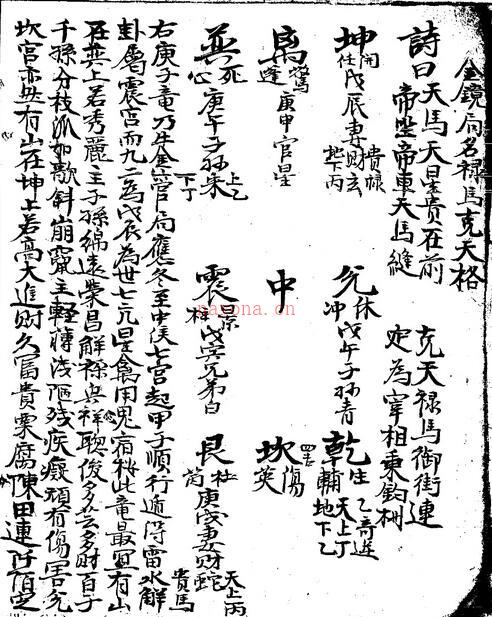 金鏡局名祿馬克天格
詩曰天馬天星貴在前 克天祿馬御街連
帝坐帝車天馬縫 定為宰相秉鈞柄
坤 開 任 戊辰妻財玄 貴祿 地下丙
兌 休 冲 戊午子孫青
乾 生 輔 乙奇遊 天上丁 地下乙
离 驚 蓬 庚申官星
中
坎 傷 英
巽 死 心 庚午子孫朱 上乙 下丁
震 景 柱 戊寅兄弟白
艮 杜 芮 庚戌妻財蛇 天上丙 貴馬
右庚子竜乃生金管局應冬至中侯七宮起甲子順行遁得雷水解
卦屬震宮而九二為戊辰為世七元星禽用鬼宿桉此竜最宜有山
在巽上若秀麗主子孫綿遠榮昌解祿呉祥聪俊多芸多財百子
千孫分枝派如欹斜崩竄主軽薄浅陋残疾癡頑有傷害兌
坎宮亦然有山在坤上若高大進財久富貴粟腐陳田連阡陌定
nayona.cn